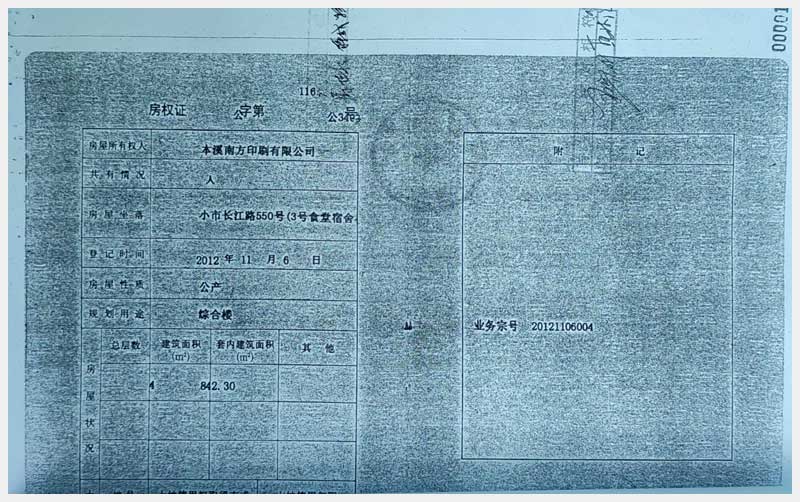 00001
116
房权证 公字第 公34 号
房屋所有权人 本溪南方印刷有限公司
共有情况 人
房屋坐落 小市长江路550号(3号食堂宿舍
登记时间 2012 年 11 月 6 日
房屋性质 公产
规划用途 综合楼
房屋状况
总层数 建筑面积(m²) 套内建筑面积(m²) 其 他
4 842.30
附 记
业务宗号 20121106004